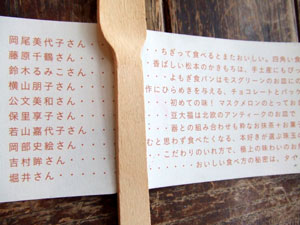 岡尾美代子さん・・・・・ちぎって食べるとまたおいしい。四角い食
藤原千鶴さん・・・・・香ばしい松本のかきもちは、手土産にもぴっ
鈴木るみこさん・・・・・よもぎ食パンはモスグリーンのお皿に
横山朋子さん・・・・・作にひらめきを与える、チョコレートとバッ
公文美和さん・・・・・初めての味！マスクメロンのとってお
保里享子さん・・・・・豆大福は北欧のアンティークのお皿で
若山嘉代子さん・・・・・器との組み合わせも粋なお抹茶＋お菓
岡部史絵さん・・・・・むと思わず食べたくなる、本好きが選ぶ珠玉
吉村眸さん・・・・・こだわりのいれ方で、極上の味わいのお
堀井さん・・・・・おいしい食べ方の秘密は、タや